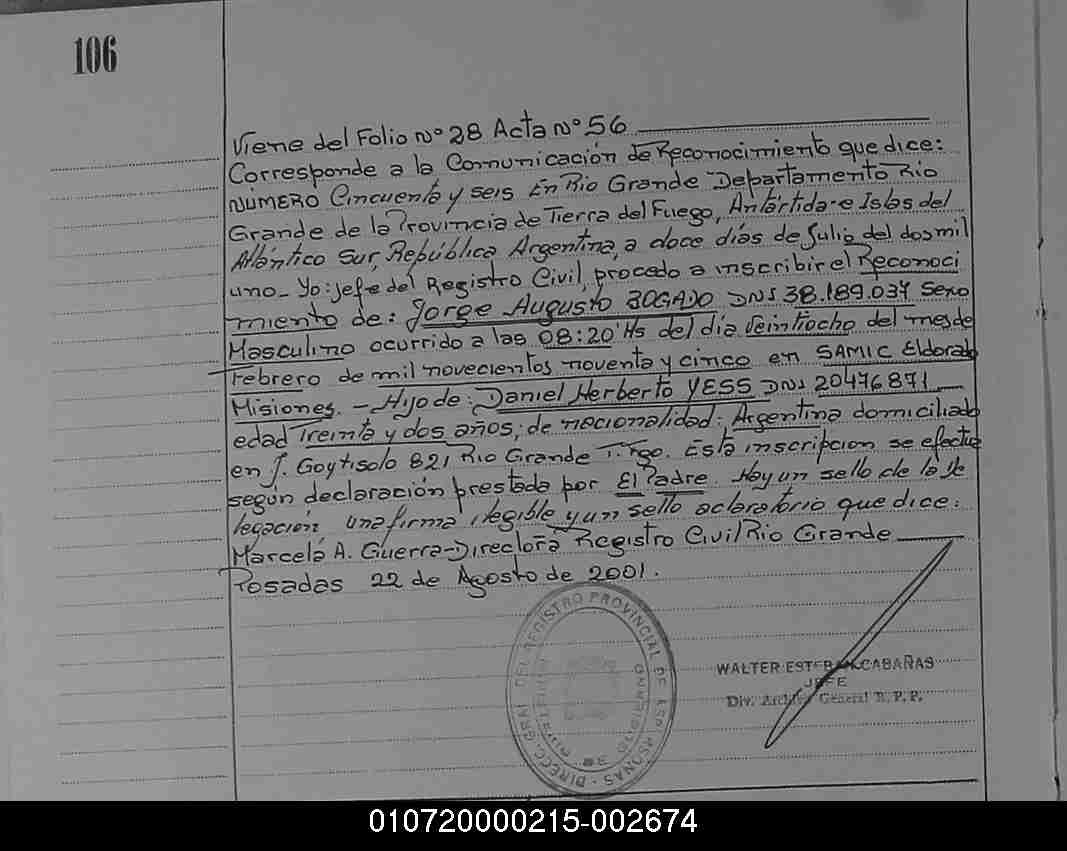 106
Viene del Folio Nº 28 Acta Nº 56
Corresponde a la Comunicación de Reconocimiento que dice:
NÚMERO Cincuenta y seis En Rio Grande Departamento Rio
Grande de la Provincia de Tierra del Fuego, Antártida e Islas del
Atlántico Sur, República Argentina, a doce días de Julio del dos mil
uno_ Yo: jefe del Registro Civil, procedo a inscribir el Reconoci
miento de: Jorge Augusto BOGADO DNI 38.189.034 Sexo
Masculino ocurrido a las 08:20 Hs del día Veintiocho del mes de
Febrero de mil novecientos noventa y cinco en SAMIC Eldorado
Misiones. - Hijo de: Daniel Herberto YESS DNI 20476871
edad Treinta y dos años; de nacionalidad: Argentina domiciliado
en J. Goytisolo 821 Rio Grande T. Fgo. Esta inscripcion se efectua
según declaración prestada por El Padre. Hay un sello de la De
legación una firma ilegible y un sello aclaratorio que dice:
Marcela A. Guerra-Directora Registro Civil Rio Grande
Posadas 22 de Agosto de 2001.
DIREC. GRAL. DEL REGISTRO PROVINCIAL DE LAS PERSONAS
WALTER ESTEBAN CABAÑAS
JEFE
Div. Archivo General R. P. P.
010720000215-002674